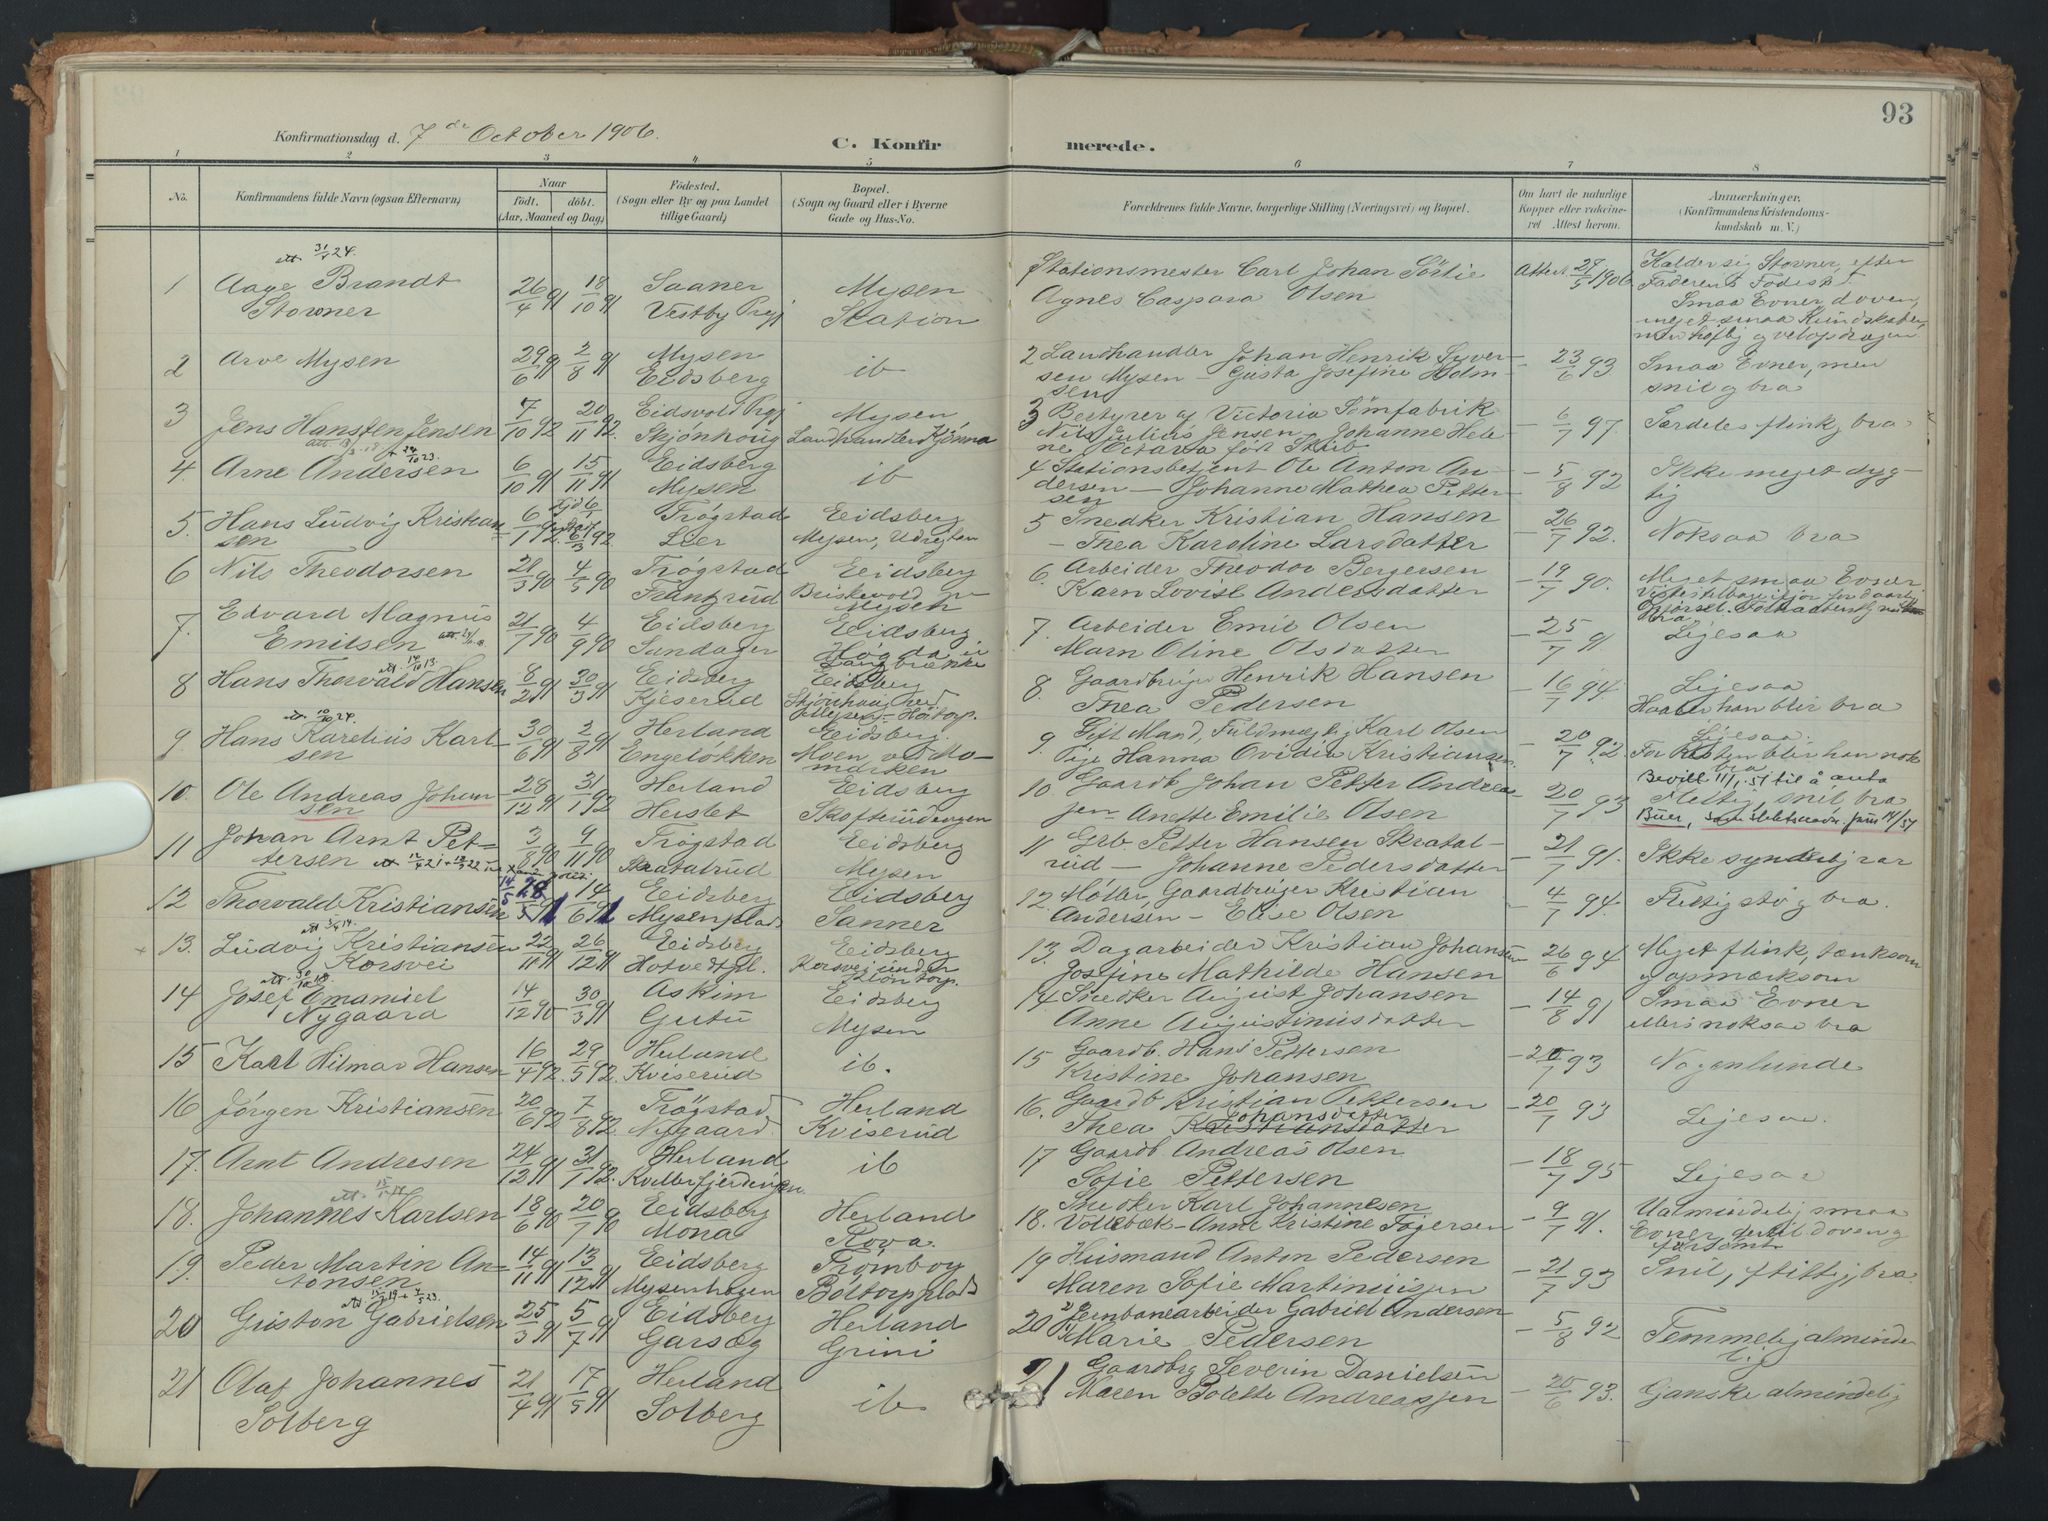 93
Konfirmationsdag d. 7de October 1906.
C. Konfirmerede.
1 2 3 4 5 6 7 8
No.
Konfirmandens fulde Navn (ogsaa Efternavn)
Naar
født. døbt.
(Aar, Maaned og Dag)
Fødested.
(Sogn eller By og paa Landet
tillige Gaard)
Bopæl.
(Sogn og Gaard eller i Byerne
Gade og Hus-No.
Forældrenes fulde Navne, borgerlige Stilling (Næringsvei) og Bopæl.
Om havt de naturlige
Kopper eller vakcine-
ret Attest herom.
Anmærkninger.
(Konfirmandens Kristendoms-
kundskab m. V.)
att. 31/1 24.
1 Aage Brandt Stovner 26/4 91 18/10 91 Saaner Vestby Prgj Mysen Station
Stationsmester Carl Johan
Agnes Caspara Olsen
Attest 1906
Kalder sig Stovner, efter
Faderens Fødest.
Smaa Evner, doven,
meget smaa Kundskaber,
men høflig og velopdragen
2 Arve Mysen 29/6 91 2/8 91 Mysen Eidsberg ib
2 Landhandler Johan Henrik Syver-
sen Mysen – Gusta Josefine Holm-
sen
– 23/6 93
Smaa Evner, men
snil og bra
3 Jens Hansten Jensen 7/10 92 20/11 92. Eidsvold Prgj Skjønhoug Mysen Landhandler Kjønna
3 Bestyrer af Victoria Sömfabrik
Nils Julius Jensen – Johanne Hele-
ne Octava født Skib
– 6/7 97.
Særdeles flink, bra
4. Arne Andersen 6/10 91 15/11 91 Eidsberg Mysen ib
4 Stationsbetjent Ole Anton An-
dersen – Johanne Mathea Petter-
sen
– 5/8 92
Ikke meget dyg-
tig
5. Hans Ludvig Kristian
sen 6/1 92. 6/3 92 Trøgstad Lier Eidsberg Mysen,
5 Snedker Kristian Hansen
– Thea Karoline Larsdatter
– 26/7 92.
Noksaa bra
6 Nils Theodorsen 21/3 90 4/5 90 Trøgstad Eidsberg Mysen
6. Arbeider Theodor Bergersen
Karn Lovise Andersdatter
– 19/7 90.
Meget smaa Evner
7. Edvard Magnus
Emilsen 21/7 90 4/9 90 Eidsberg Sandager Eidsberg
7. Arbeider Emil Olsen
Marn Oline Olsdatter
– 25/7 91
Ligesaa
8 Hans Thorvald Hansen 8/2 91 30/3 91 Eidsberg Kjeserud Eidsberg
8. Gaardbruger Henrik Hansen
Thea Pedersen
– 16/7 94.
Ligesaa
Haaber han blir bra
att. 10/10 24.
9. Hans Karelius Karl-
sen 30/6 91 2/8 91 Herland Engeløkken Eidsberg. Moen ved Mo-
marken
9. Gift Mand, Fuldmægtig Karl Olsen
Pige Hanna Ovidia Kristiansen.
– 20/7 92.
Ligesaa.
For Resten blir han nok
bra
10. Ole Andreas Johan
sen 28/12 91 31/1 92 Herland Herslet Eidsberg
10. Gaardb. Johan Petter Andreas-
sen Anette Emilie Olsen
– 20/7 93
Bevill 11/1. 51 til å anta
Flittig, snil bra
Buer, som slektsnavn.
11 Johan Arnt Pet-
tersen 3/8 90 9/11 90 Trøgstad Skratalrud Eidsberg Mysen
11 Grb. Petter Hansen Skratal-
rud – Johanne Pedersdatter
– 21/7 91.
Ikke synderlig rar
12 Thorvald Kristiansen 14/6 91 Eidsberg Mysenplads Eidsberg Sanner
12. Møller, Gaardbruger Kristian
Andersen – Elise Olsen
– 4/7 94.
Flittig stø og bra.
13. Ludvig Kristiansen
Korsvei 22/11 91 26/12 91 Eidsberg Hotvedtpl. Eidsberg Korsvei under
13. Dagarbeider Kristian Johansen
Josefine Mathilde Hansen
– 26/6 94
Meget flink, tænksom
og opmærksom
14 Josef Emanuel
Nygaard 14/12 90 30/3 91 Askim Gutu Eidsberg Mysen
14 Snedker August Johansen
Anne Augustinusdatter
– 14/8 91
Smaa Evner
ellers noksaa bra
15 Karl Hilmar Hansen 16/4 92. 29/5 92. Herland Kviserud ib.
15 Gaardb. Hans Pettersen
Kristine Johansen
– 20/7 93
Nogenlunde
16 Jørgen Kristiansen 20/6 92 7/8 92. Trøgstad Nygaard. Herland Kviserud
16. Gaardb Kristian Pettersen
Thea Kristiansdatter Johansdatter
– 20/7 93
Ligesaa.
17. Arnt Andresen 24/12 91 31/1 92. Herland Kvillerfjerdingen ib
17 Gaardb. Andreas Olsen
Sofie Pettersen
– 18/7 95
Ligesaa
18. Johannes Karlsen 18/6 90 20/7 90 Eidsberg Mona Herland Kova.
Snedker Karl Johannesen
18. Vollebæk – Anne Kristine
– 9/7 91.
Ualmindelig smaa
Evner, dertil doven og
forsømt
19. Peder Martin An-
tonsen 14/11 91 13/12 91 Eidsberg Mysenhagen Trømborg Böltorpplads
19 Husmand Anton Pedersen
Maren Sofie Martinussen
– 21/7 93
Snil, flittig, bra
20 Guston Gabrielsen 25/3 91 5/7 91 Eidsberg Garseg Herland Grini
20 Jernbanearbeider Gabriel Andersen
Marie Pedersen
– 5/8 92
Temmelig alminde
lig
21 Olaf Johannes
Solberg 21/4 91 17/5 91 Herland Solberg ib
21 Gaardbrg Severin Danielsen
Maren Bolette Andreassen
– 20/6 93.
Ganske almindelig